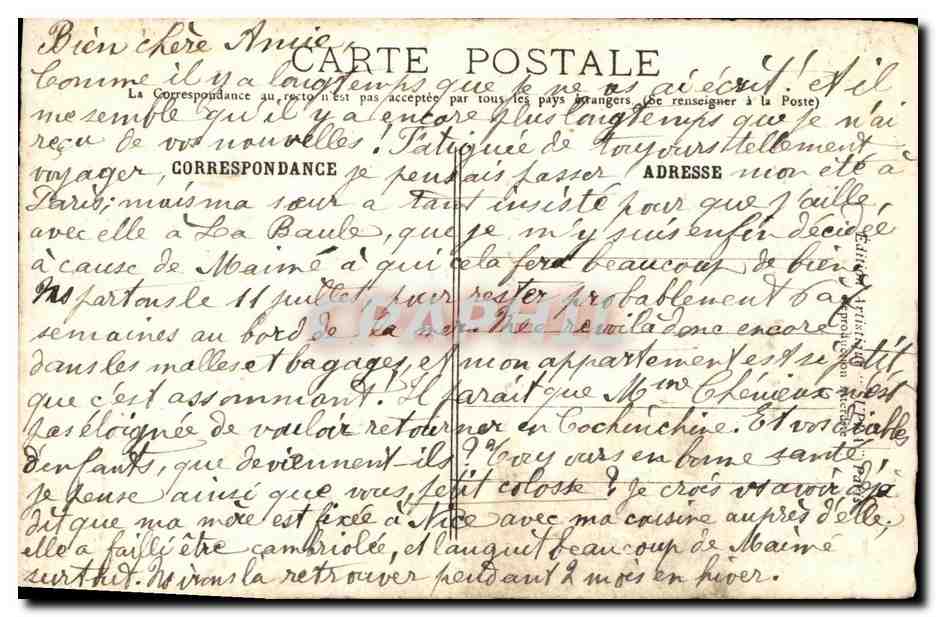 Bien chère Amie,
CARTE POSTALE
Comme il y a longtemps que je ne vs ai écrit! Et il
La Correspondance au recto n'est pas acceptée par tous les pays étrangers (Se renseigner à la Poste)
me semble qu'il y a encore plus longtemps que je n'ai
reçu de vos nouvelles! Fatiguée de toujours tellement
voyager, je pensais passer mon été à
CORRESPONDANCE
ADRESSE
Paris; mais ma sœur a tant insisté pour que j'aille
avec elle à La Baule, que je m'y suis enfin décidée
à cause de Maimé à qui cela fera beaucoup de bien.
Ns partons le 11 juillet, pour rester probablement 6
semaines au bord de la mer. Me revoilà donc encore
dans les malles et bagages, et mon appartement est si petit
que c'est assommant. Il parait que Mme n'est
pas éloignée de vouloir retourner en Cochinchine. Et vos
d'enfants, que deviennent-ils? Toujours en bonne santé
je pense ainsi que vous, petit colosse? Je crois vs avoir déjà
dit que ma mère est fixée à Nice avec ma cousine auprès d'elle;
elle a failli être cambriolée, et languit beaucoup de Maimé
surtout. Ns irons la retrouver pendant 2 mois en hiver.
CPAPHIL